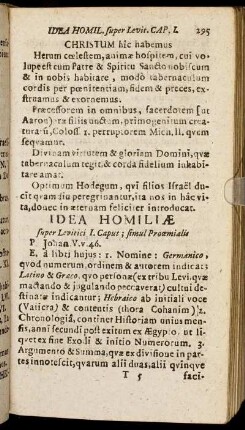 IDEA HOMIL. super Levit. CAP. I. 295
CHRISTUM hîc habemus
Herum cœlestem, animæ hospitem, cui vo-
lupe est cum Patre & Spiritu Sancto nobiscum
& in nobis habitare, modò tabernaculum
cordis per pœnitentiam, fidem & preces, ex-
struamus & exornemus.
Præcessorem in omnibus, sacerdotem [ut
Aaron] præ filiis unctum, primogenitum crea-
turarū, Coloss. 1. perruptorem Mich. II. quem
sequamur.
Divinam virtutem & gloriam Domini, quæ
tabernaculum tegit, & corda fidelium inhabi-
tare amat.
Optimum Hodegum, qui filios Israël du-
cit quam in peregrinantur, ita nos in hâc vi-
tâ, donec in æternam feliciter introducat.
IDEA HOMILIÆ
super Levitici I. Caput; simul Proœmialis
P. Johan. V. v. 46.
E. â libri hujus: 1. Nomine: Germanico,
quod numerum, ordinem & autorem indicat:
Latino & Græco, quo personæ (ex tribu Levi, quæ
mactando & jugulando peccaverat) cultui de-
stinatæ indicantur; Hebraico ab initiali voce
(Vaiicra) & contentis (thora Cohanim) 2.
Chronologiâ, continet Historiam unius men-
sis, anni secundi post exitum ex Ægypto. ut li-
quet ex fine Exodi & initio Numerorum. 3.
Argumento & Summa, quæ ex divisione in par-
tes innotescit, quarum alii duas, alii quinque
T 5 faci-